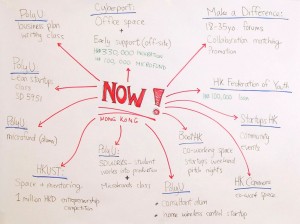 PolyU
business plan
writing class
Cyberport:
Office space
+
Early support (off-site)
HK$330,000 INCUBATION
HK$100,000 MICROFUND
Make a Difference:
18-35yo. forums
Collaboration matching
Promotion
PolyU:
class
SD 5951
HK Federation of Youth
HK$100,000 loan
NOW!
HONG KONG
StartupsHK
community
events
PolyU:
microfund (dorm)
BootHK
coworking space
startups weekend
pitch nights
HKUST:
Space + mentoring
1 million HKD entrepreneurship
competition
PolyU:
student
works into production
+
class
PolyU
consultant alum
+ home wireless control startup
HK Commons
co-work space